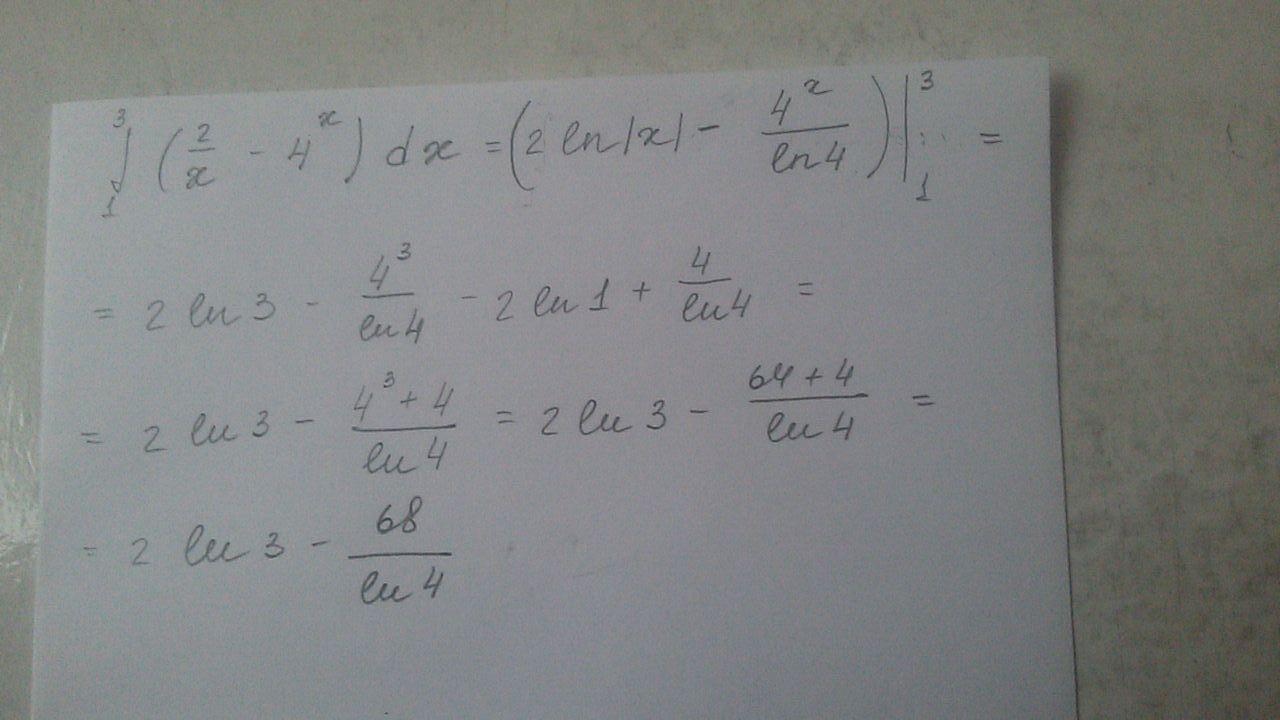 ∫₁³ (2/x - 4ˣ) dx = (2 ln|x| - 4ˣ/ln4)|₁³ =
= 2 ln 3 - 4³/ln4 - 2 ln 1 + 4/ln4 =
= 2 ln 3 - (4³ + 4)/ln 4 = 2 ln 3 - (64 + 4)/ln 4 =
= 2 ln 3 - 68/ln 4